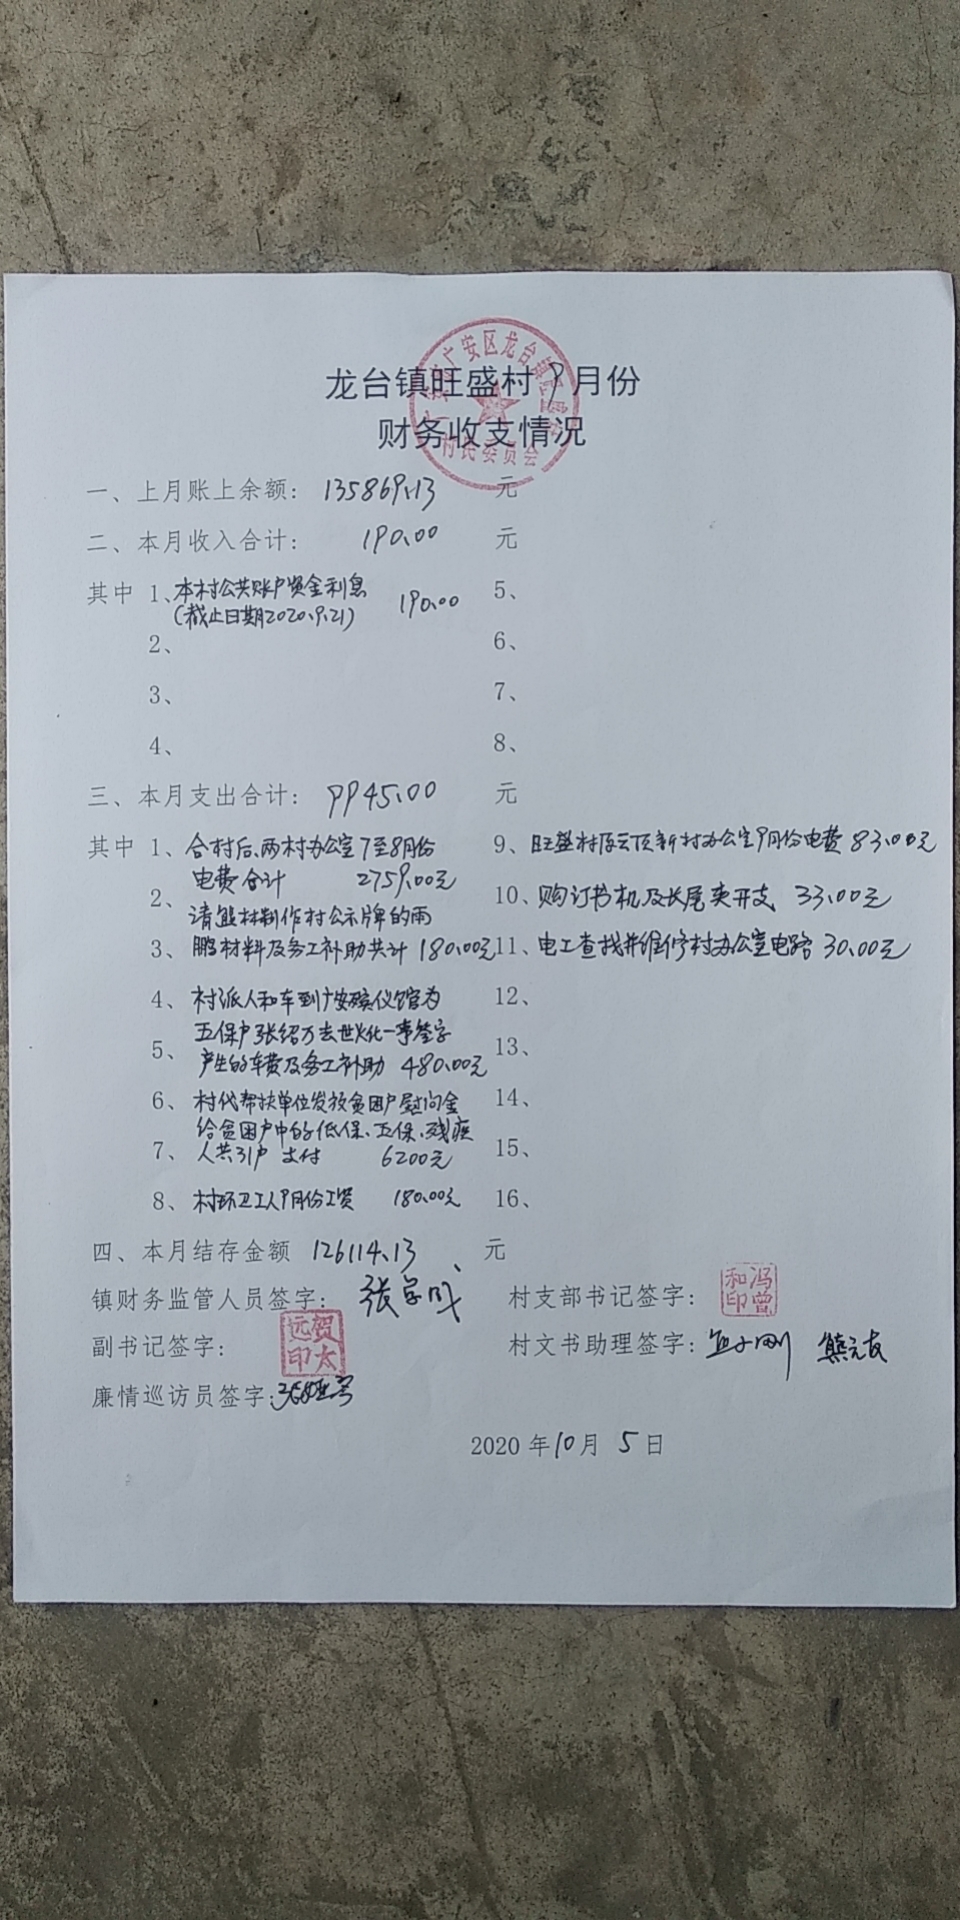 龙台镇旺盛村9月份
财务收支情况
广安区龙台镇
村民委员会
一、上月账上余额: 135869.13 元
二、本月收入合计: 190.00 元
其中 1、本村公共账户资金利息 5、
(截止日期2020.9.21) 190.00
2、 6、
3、 7、
4、 8、
三、本月支出合计: 9945.00 元
其中 1、合村后、两村办公室7至8月份 9、旺盛村原云顶新村办公室9月份电费 83.00元
电费合计 2759.00元
2、 10、购订书机及长尾夹开支 33.00元
请熊林制作村公示牌的雨
3、鹏材料及务工补助共计 180.00元 11、电工查找并维修村办公室电路 30.00元
4、村派人和车到广安殡仪馆为 12、
五保户张绍万去世火化一事签字
5、 13、
产生的车费及务工补助 480.00元
6、村代帮扶单位发放贫困户慰问金 14、
给贫困户中的低保、五保、残疾
7、人共31户 支付 6200元 15、
8、村环卫工人9月份工资 180.00元 16、
四、本月结存金额 126114.13 元
镇财务监管人员签字: 村支部书记签字: 冯曾和印
副书记签字: 贺太远印 村文书助理签字: 熊元友
廉情巡访员签字:
2020年10月5日